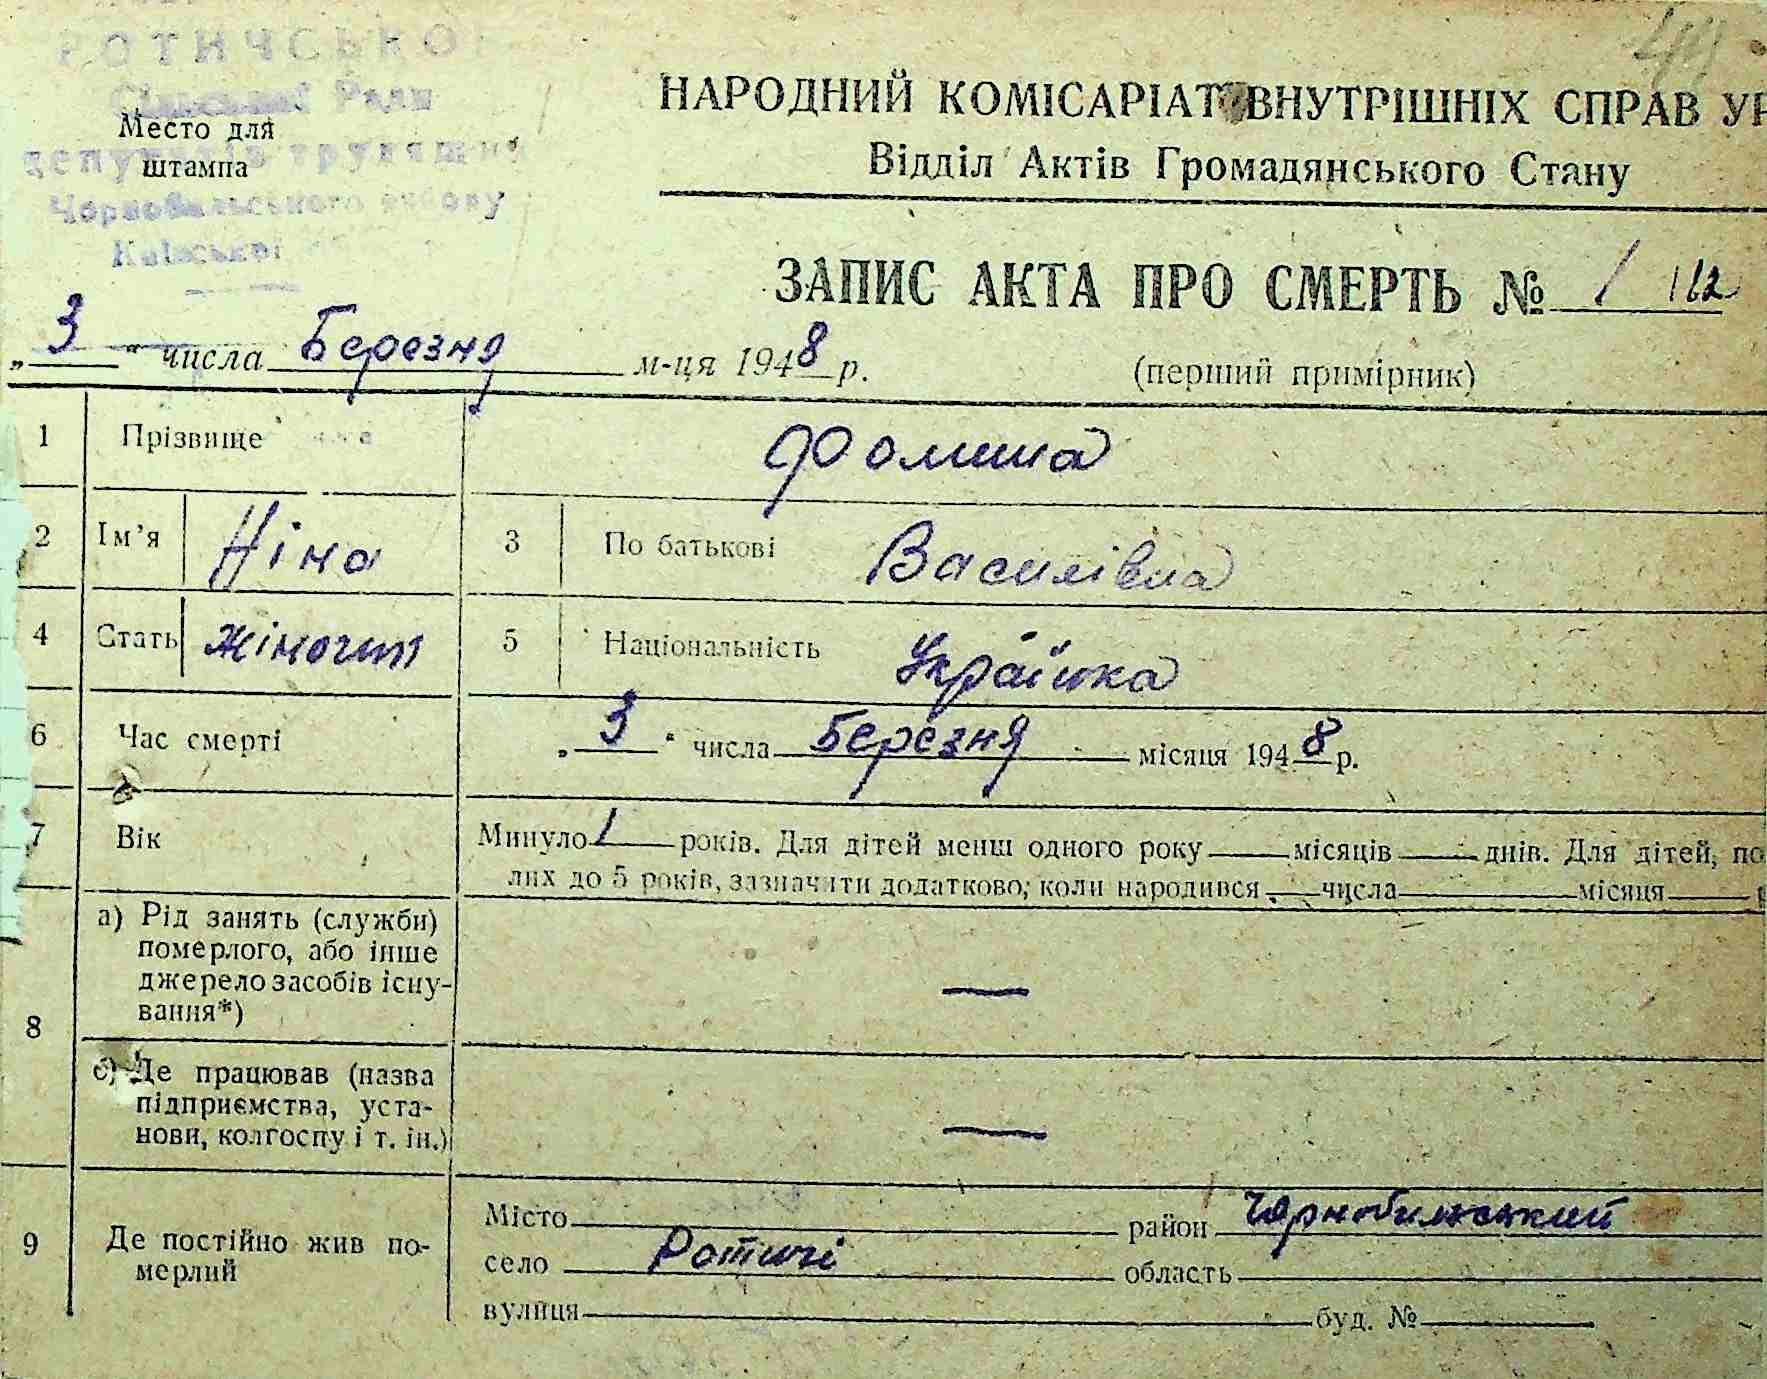 РОТИЧСЬКО
Сільської Ради
Место для
штампа
депутатів трудящих
Чорнобильського району
Київської
44
НАРОДНИЙ КОМІСАРІАТ ВНУТРІШНІХ СПРАВ УР
Відділ Актів Громадянського Стану
ЗАПИС АКТА ПРО СМЕРТЬ № 1 112
„3“ числа Березня м-ця 1948 р.
(перший примірник)
1 Прізвище Фомина
2 Ім’я Ніна 3 По батькові Василівна
4 Стать жіночий 5 Національність Українка
6 Час смерті „3“ числа Березня місяця 1948 р.
7 Вік Минуло 1 років. Для дітей менш одного року місяців днів. Для дітей, по
лих до 5 років, зазначити додатково, коли народився числа місяця
8 а) Рід занять (служби)
померлого, або інше
джерело засобів існу-
вання*) —
б) Де працював (назва
підприємства, уста-
нови, колгоспу і т. ін.) —
9 Де постійно жив по-
мерлий
Місто район Чорнобильський
село Ротичі область
вулиця буд. №